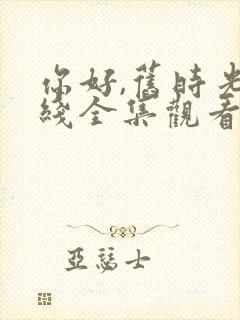 你好,舊時光
綫全集觀看
亞瑟士